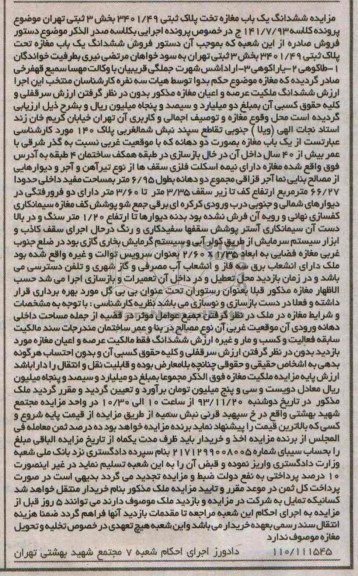 مزایده ششدانگ یک باب مغازه تحت پلاک ثبتی ۳۴۰۱/۴۹ بخش ۳ ثبتی تهران موضوع
پرونده کلاسه ۱۴۱/۷/۹۳ ج در خصوص پرونده اجرایی بکلاسه صدر الذکر موضوع دستور
فروش صادره از این شعبه که بموجب آن دستور فروش ششدانگ یک باب مغازه تحت
پلاک ثبتی ۳۴۰۱/۴۹ بخش ۳ ثبتی تهران به سود خواهان مرتضی نیری بطرفیت خواندگان
صادر گردیده که مغازه موضوع حکم بدوا توسط هیات سه نفره کارشناسان منتخب این اجرا
ارزش ششدانگ ملکیت عرصه و اعیان مغازه مذکور بدون در نظر گرفتن ارزش سرقفلی و
کلیه حقوق کسبی آن بمبلغ دو میلیارد و سیصد و پنجاه میلیون ریال و بشرح ذیل ارزیابی
گردیده است محل وقوع مغازه و توصیف اجمالی و کاربری آن تهران خیابان کریم خان زند
استاد نجات الهی (ویلا) جنوبی تقاطع سپند نبش شمالغربی پلاک ۱۳۰ مورد کارشناسی
عبارتست از یک باب مغازه بصورت دو دهانه که با موقعیت غربی نسبت به گذر شرقی با
عمر بیش از ۴۰ سال داخل آن در حال بازسازی در طبقه همکف ساختمان ۴ طبقه به آدرس
فوق واقع شده مغازه دارای نیمه اسکلت فلزی سقف ها از نوع تیرآهن و آجر و دیوارهایی
از مصالح بنایی نما آجر قزاقی مجموع دو دهانه بطول ۶/۹۵ متر بمساحت مفید داخل حدودا
۶۶/۲۷ مترمربع ارتفاع کف تا زیر سقف ۳/۳۵ متر تا ۳/۶۰ متر دارای دو فرورفتگی در
دیوارهای شمالی و جنوبی درب ورودی کرکره ای برقی جمع شو پوشش کف مغازه سیمانکاری
کفسازی نهائی و رویه آن فرش نشده بود بدنه دیوارها تا ارتفاع ۱/۲۰ متر سنگ و در بالا
دست آن سیمانکاری آستر پوشش سقفها سفیدکاری و رنگ درحال اجرای سقف کاذب و
ابزار سیستم سرمایش از طریق کولر آبی و سیستم گرمایش بخاری گازی بود در ضلع جنوب
غربی مغازه فضایی به ابعاد ۱/۳۵ × ۲/۶۰ بعنوان سرویس توالت و غیره واقع شده بود
ملک دارای انشعاب برق سه فاز و انشعاب آب مصرفی و گاز شهری و تلفن دسترسی می
باشد و در زمان بازدید محل تعطیل و در داخل آن تعمیرات و بازسازی اجرا می شد حسب
الاظهار مغازه مذکور قبلا بعنوان رستوران تحت عنوان بی بی گل مورد بهره برداری قرار
داشته و فعلا در دست بازسازی و نوسازی می باشد نظریه کارشناسی: با توجه به مشخصات
و شرایط مغازه در ملک در نظر گرفتن جمیع عوامل موثر در قضیه از جمله مساحت داخلی
دهانه ورودی آن موقعیت غربی آن نوع مصالح در بنا و عمر ساختمان مندرجات سند مالکیت
سابقه فعالیت و کسب و مار و غیره ارزش ششدانگ فقط مالکیت عرصه و اعیان مغازه مورد
بازدید بدون در نظر گرفتن ارزش سرقفلی و کلیه حقوق کسبی آن و بدون احتساب هرگونه
بدهی به اشخاص حقیقی و حقوقی چنانچه بلامعارض بوده و قابلیت نقل و انتقال را دارا باشد
ارزش پایه مزایده ملکیت مغازه فوق الذکر مجموعا بمبلغ دو میلیارد و سیصد و پنجاه میلیون
ریال معادل دویست و سی و پنج میلیون تومان برآورد و تعیین گردید و مقرر گردید ملک
مذکور در تاریخ دوشنبه ۹۳/۱۱/۲۰ از ساعت ۱۰ الی ۱۰/۳۰ در واحد مزایده مجتمع
شهید بهشتی واقع در خ سپهبد قرنی نبش سمیه از طریق مزایده از قیمت پایه شروع و
کسی که بالاترین قیمت را پیشنهاد نماید برنده مزایده خواهد بود ده درصد ثمن معامله فی
المجلس از برنده مزایده اخذ و خریدار باید ظرف مدت یکماه از تاریخ مزایده الباقی مبلغ
را بحساب سیبای شماره ۲۱۷۱۲۹۹۰۰۸۰۰۵ بنام سپرده دادگستری نزد بانک ملی شعبه
وزارت دادگستری واریز نموده و قبض آن را به این شعبه تسلیم نماید در غیر اینصورت
۱۰ درصد پرداختی به نفع دولت ضبط و مزایده تجدید می گردد بدیهی است در صورت
پرداخت کل ثمن در موعد مقرر و تایید مزایده ملک مذکور بنام خریدار منتقل خواهد شد
کسانیکه تمایل به شرکت در مزایده و بازدید ملک موصوف دارند می توانند ۵ روز قبل از
مزایده به اجرای احکام این شعبه مراجعه تا مقدمات بازدید آنها فراهم گردد ضمنا هزینه
انتقال سند رسمی بعهده خریدار می باشد و این شعبه هیچ تعهدی در خصوص تخلیه و تحویل
مغازه موصوف ندارد
۱۱۰/۱۱۱۵۴۵ دادورز اجرای احکام شعبه ۷ مجتمع شهید بهشتی تهران